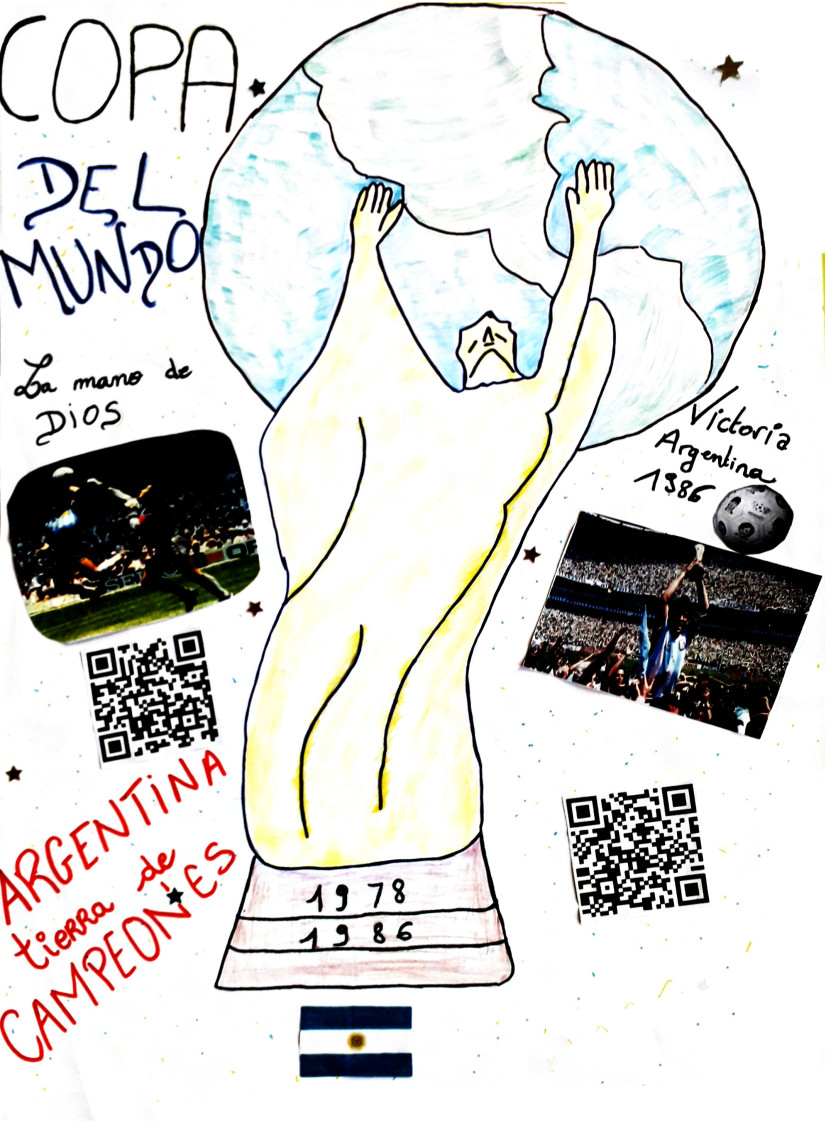 COPA
DEL
MUNDO
La mano de
DIOS
Victoria
Argentina
1986
ARGENTINA
tierra de
CAMPEONES
1978
1986